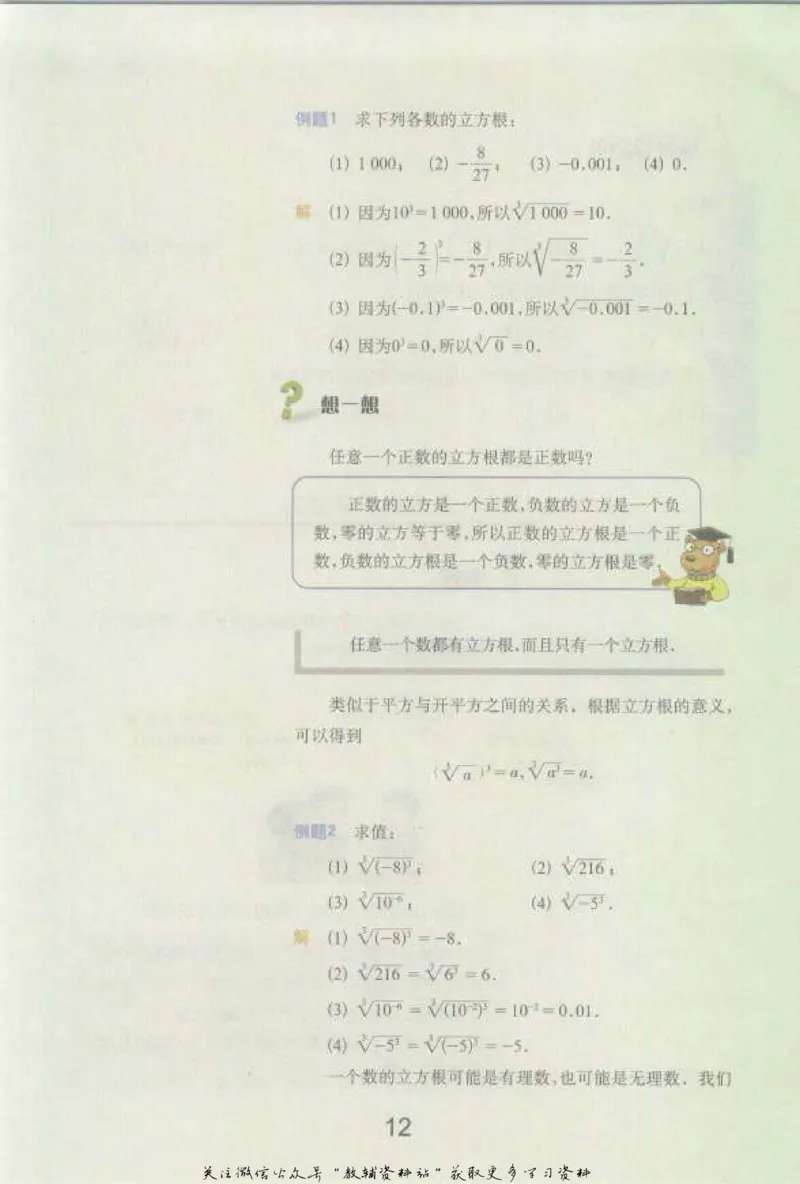 例题1 求下列各数的立方根:
(1) 1 000; (2) −8/27; (3) −0.001; (4) 0.
解 (1) 因为10³=1 000,所以∛1 000=10.
(2) 因为(−2/3)³=−8/27,所以∛(−8/27)=−2/3.
(3) 因为(−0.1)³=−0.001,所以∛−0.001=−0.1.
(4) 因为0³=0,所以∛0=0.
? 想一想
任意一个正数的立方根都是正数吗?
正数的立方是一个正数,负数的立方是一个负
数,零的立方等于零,所以正数的立方根是一个正
数,负数的立方根是一个负数,零的立方根是零.
任意一个数都有立方根,而且只有一个立方根.
类似于平方与开平方之间的关系,根据立方根的意义,
可以得到
(∛a)³=a,∛a³=a.
例题2 求值:
(1) ∛(−8)³; (2) ∛216;
(3) ∛10⁻⁶; (4) ∛−5³.
解 (1) ∛(−8)³=−8.
(2) ∛216=∛6³=6.
(3) ∛10⁻⁶=∛(10⁻²)³=10⁻²=0.01.
(4) ∛−5³=∛(−5)³=−5.
一个数的立方根可能是有理数,也可能是无理数. 我们
12
关注微信公众号"教辅资料站"获取更多学习资料